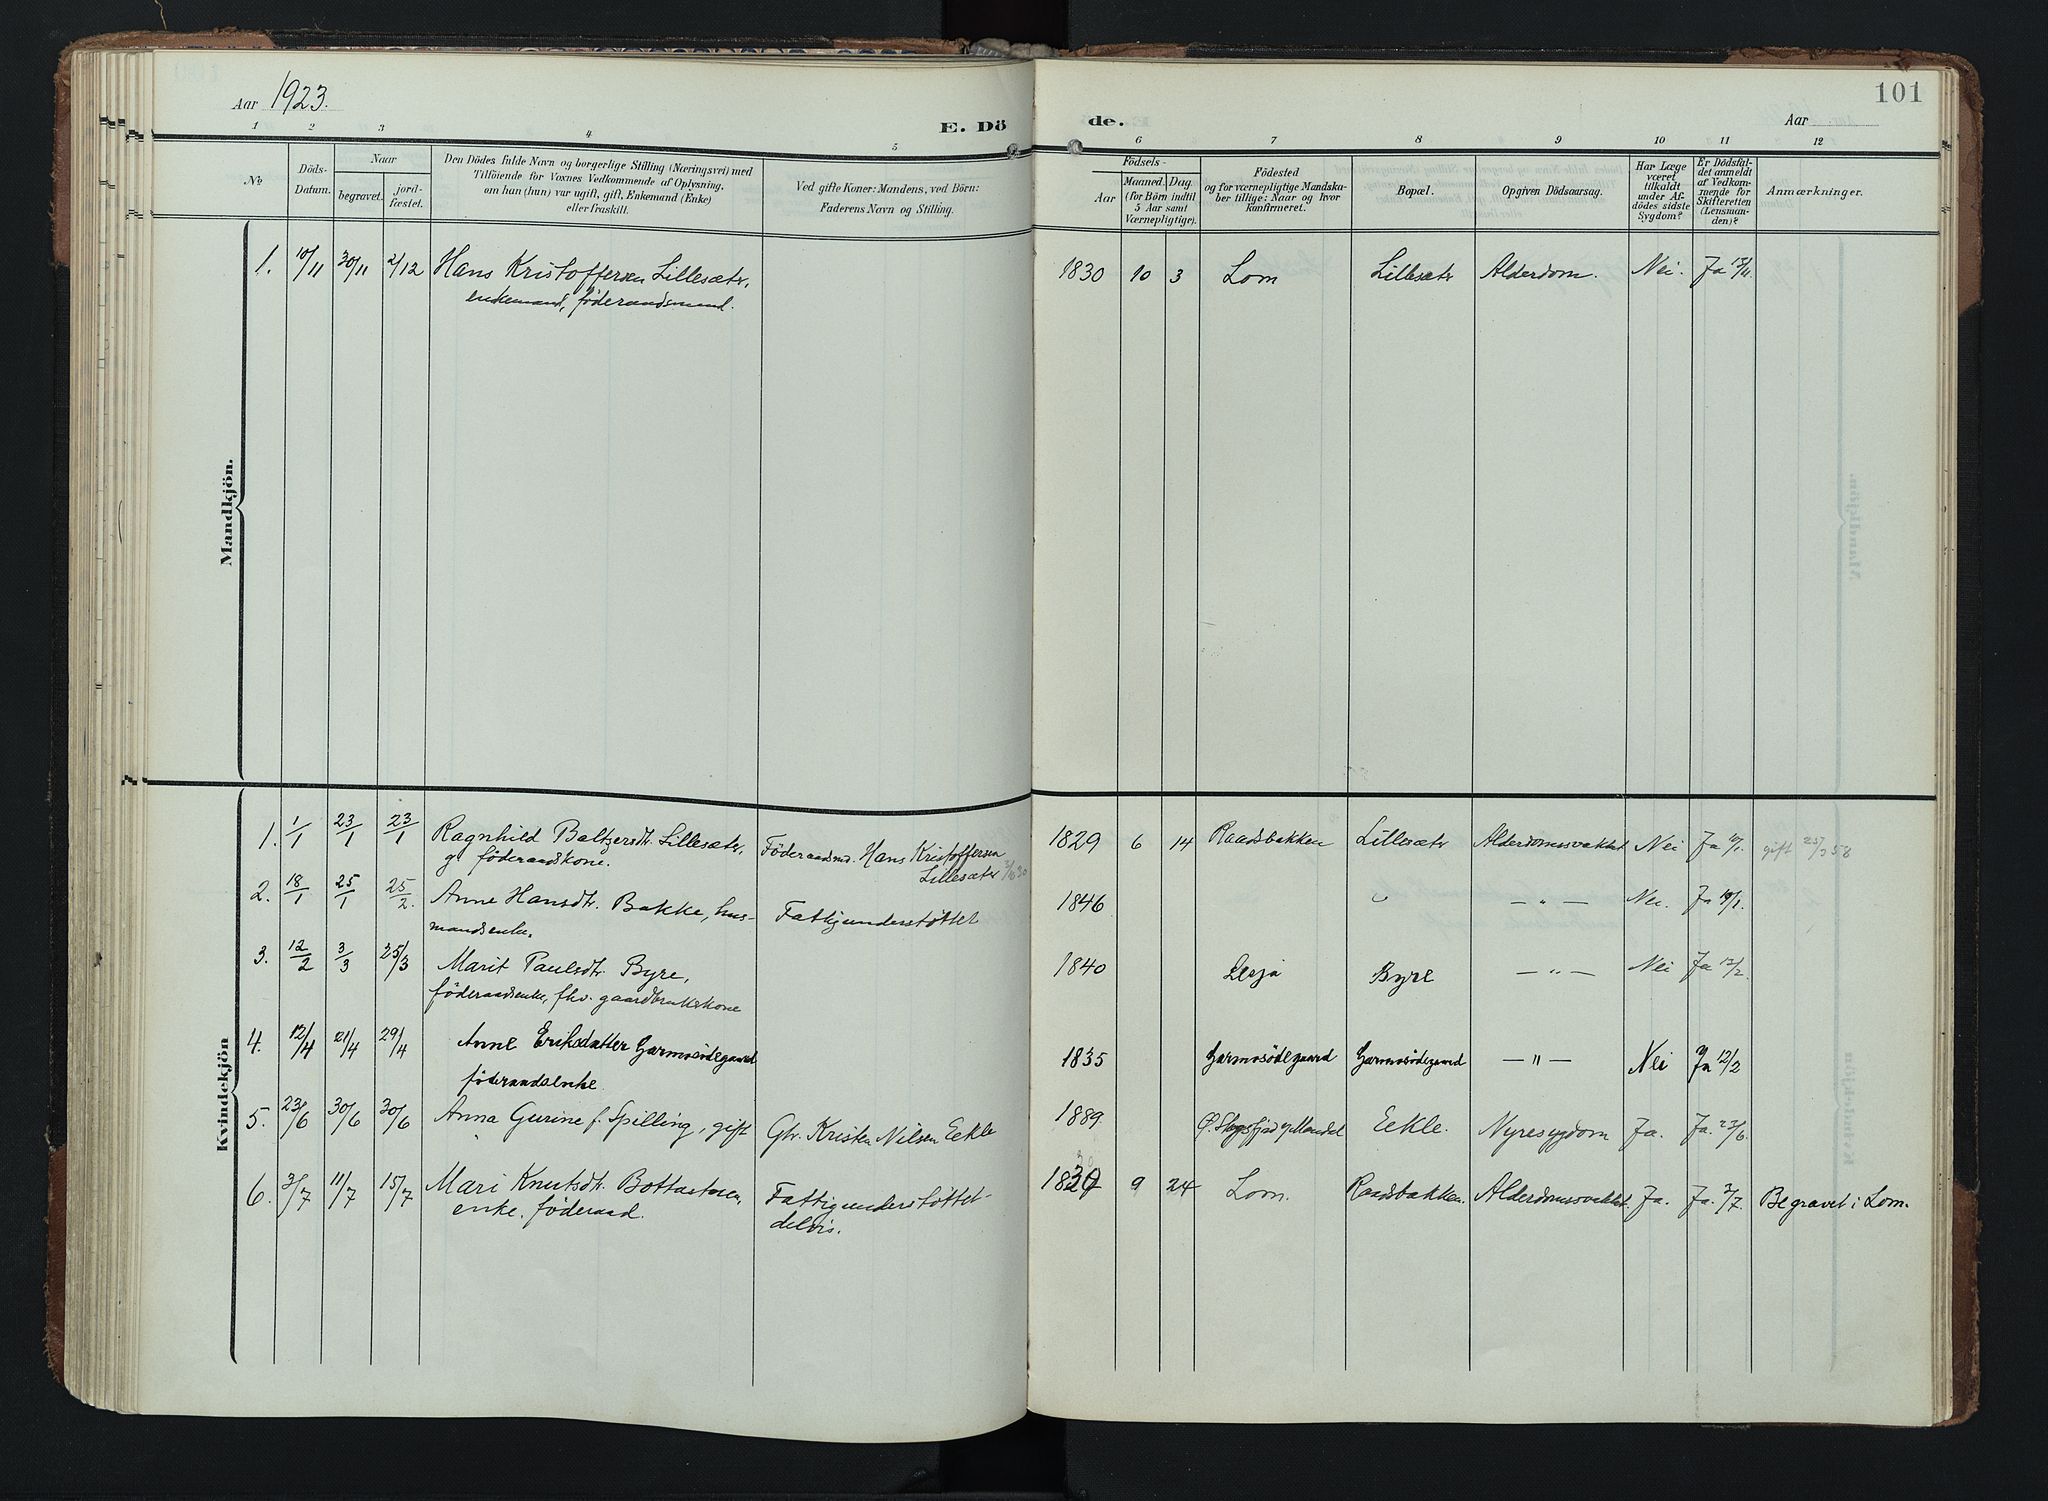 Aar 1923.
E. Dö
de.
101
Aar
1 2 3 4 5 6 7 8 9 10 11 12
No
Döds-Datum.
Naar
begravet.
jord-fæstet.
Den Dödes fulde Navn og borgerlige Stilling (Næringsvei) med
Tilföiende for Voxnes Vedkommende af Oplysning,
om han (hun) var ugift, gift, Enkemand (Enke)
eller fraskilt.
Ved gifte Koner: Mandens, ved Börn:
Faderens Navn og Stilling.
Födsels-
Aar
Maaned. Dag.
(for Börn indtil
5 Aar samt
Værnepligtige).
Födested
og for værnepligtige Mandska-
ber tillige: Naar og hvor
konfirmeret.
Bopæl.
Opgiven Dödsaarsag.
Har Læge
været
tilkaldt
under Af-
dödes sidste
Sygdom?
Er Dödsfal-
det anmeldt
af Vedkom-
mende for
Skifteretten
(Lensman-
den)?
Anmærkninger.
Mandkjön.
1. 10/11 30/11 2/12 Hans Kristoffersen Lillesæter, 1830 10 3 Lom Lillesæter Alderdom. Nei. Ja 13/11.
enkemand, föderaadsmand.
Kvindekjön
1. 1/1 23/1 23/1 Ragnhild Baltzersdtr. Lillesæter, Föderaadsmd. Hans Kristoffersen 1829 6 14 Raadsbakken Lillesæter Alderdomssvakhet Nei Ja gift 25/3 58
g föderaadskone. Lillesæter 3/10 30
2. 18/1 25/1 25/2. Anne Hansdtr. Bakke, hus- Fattigunderstöttet 1846 " — " — Nei. Ja 19/1.
mandsenke.
3. 12/2 3/3 25/3 Marit Paulsdtr. Byre, 1840 Lesja Byre — " — Nei Ja 13/2.
föderaadsenke, fhv. gaardbrukskone
4. 12/4 21/4 29/4 Anne Eriksdatter Garmosödegaard 1835 Garmosödegaard Garmosödegaard — " — Nei Ja 12/2
föderaadsenke
5. 23/6 30/6 30/6 Anna Gurine f. Spilling, gift Gbr. Kristen Nilsen Eekle 1889 Eekle. Nyresygdom Ja. Ja. 23/6.
6. 3/7 11/7 15/7 Mari Knutsdtr. Bottastuen, Fattigunderstöttet 1830 30 9 24 Lom. Raadsbakken. Alderdomssvakhet. Ja. Ja. 3/7. Begravet i Lom.
enke. föderaad. delvis.